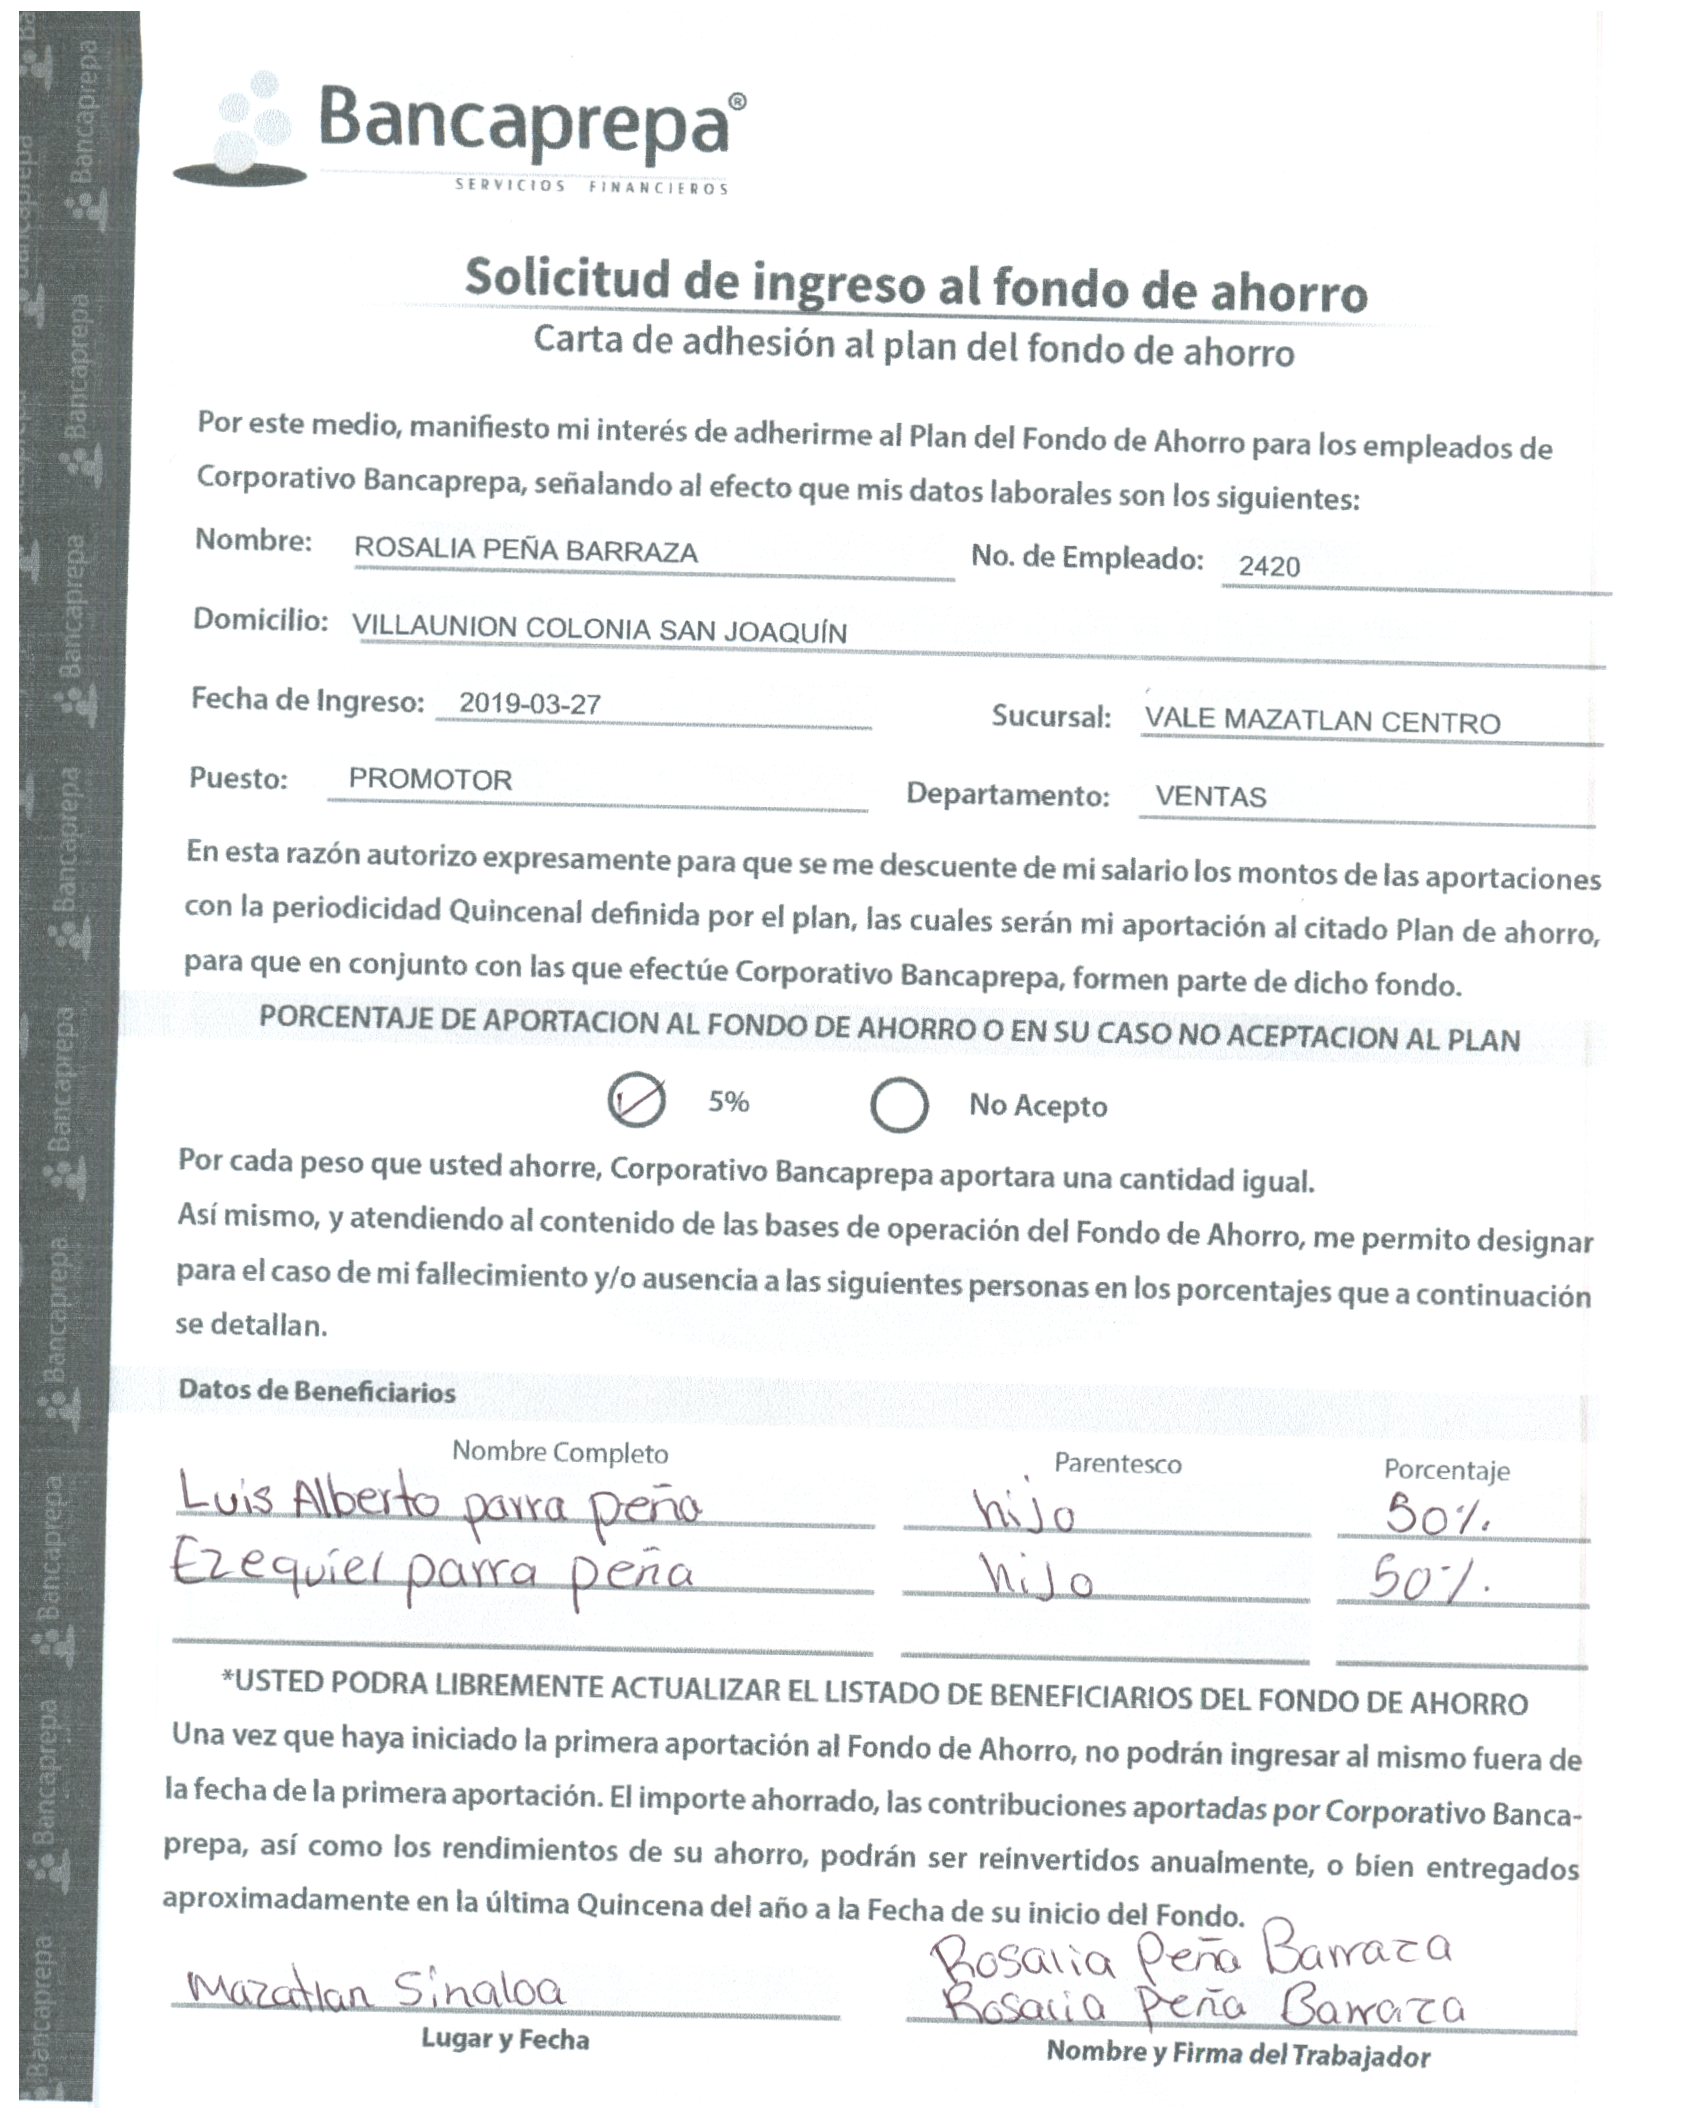 Bancaprepa®
SERVICIOS FINANCIEROS
Solicitud de ingreso al fondo de ahorro
Carta de adhesión al plan del fondo de ahorro
Por este medio, manifiesto mi interés de adherirme al Plan del Fondo de Ahorro para los empleados de
Corporativo Bancaprepa, señalando al efecto que mis datos laborales son los siguientes:
Nombre: ROSALIA PEÑA BARRAZA No. de Empleado: 2420
Domicilio: VILLAUNION COLONIA SAN JOAQUÍN
Fecha de Ingreso: 2019-03-27 Sucursal: VALE MAZATLAN CENTRO
Puesto: PROMOTOR Departamento: VENTAS
En esta razón autorizo expresamente para que se me descuente de mi salario los montos de las aportaciones
con la periodicidad Quincenal definida por el plan, las cuales serán mi aportación al citado Plan de ahorro,
para que en conjunto con las que efectúe Corporativo Bancaprepa, formen parte de dicho fondo.
PORCENTAJE DE APORTACION AL FONDO DE AHORRO O EN SU CASO NO ACEPTACION AL PLAN
5% No Acepto
Por cada peso que usted ahorre, Corporativo Bancaprepa aportara una cantidad igual.
Así mismo, y atendiendo al contenido de las bases de operación del Fondo de Ahorro, me permito designar
para el caso de mi fallecimiento y/o ausencia a las siguientes personas en los porcentajes que a continuación
se detallan.
Datos de Beneficiarios
Nombre Completo Parentesco Porcentaje
Luis Alberto parra peña hijo 50%
Ezequiel parra peña hijo 50%
*USTED PODRA LIBREMENTE ACTUALIZAR EL LISTADO DE BENEFICIARIOS DEL FONDO DE AHORRO
Una vez que haya iniciado la primera aportación al Fondo de Ahorro, no podrán ingresar al mismo fuera de
la fecha de la primera aportación. El importe ahorrado, las contribuciones aportadas por Corporativo Banca-
prepa, así como los rendimientos de su ahorro, podrán ser reinvertidos anualmente, o bien entregados
aproximadamente en la última Quincena del año a la Fecha de su inicio del Fondo.
Rosalia Peña Barraza
Mazatlan Sinaloa Rosalia Peña Barraza
Lugar y Fecha Nombre y Firma del Trabajador